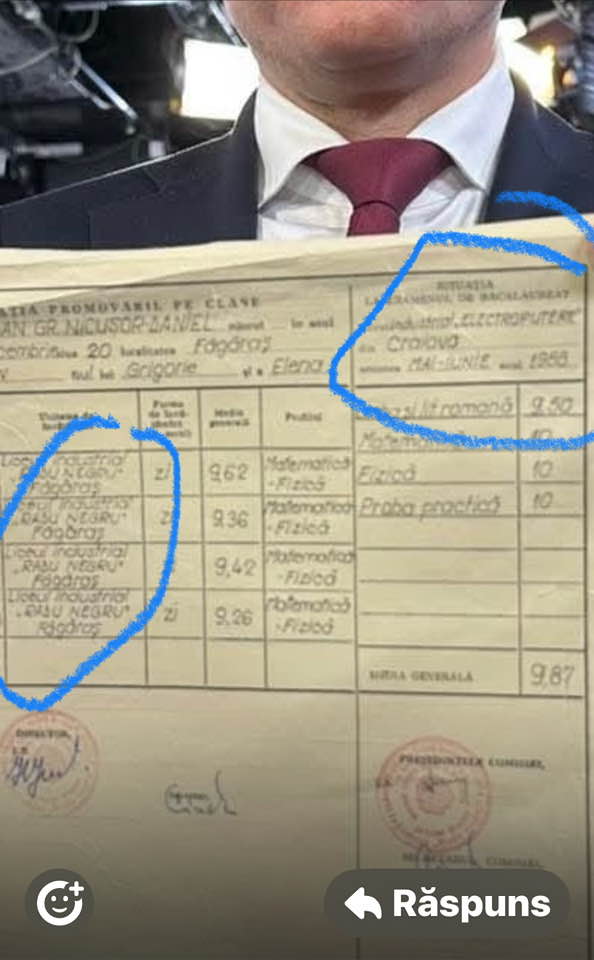 AȚIA PROMOVĂRII PE CLASE
AN. GR. NICUȘOR-DANIEL născut în anul
cembrie ziua 20 localitatea Făgăraș
fiul lui Grigorie și a Elena
SITUAȚIA
LA EXAMENUL DE BACALAUREAT
Industrial „ELECTROPUTERE”
din Craiova
sesiunea MAI-IUNIE anul 1988
Forma de învă-
Media generală
Profilul
Liceul Industrial „RADU NEGRU” Făgăraș
zi
9,62
Matematică -Fizică
Liceul Industrial „RADU NEGRU” Făgăraș
zi
9,36
Matematică -Fizică
Liceul Industrial „RADU NEGRU” Făgăraș
9,42
Matematică -Fizică
Liceul Industrial „RADU NEGRU” Făgăraș
zi
9,26
Matematică -Fizică
și lit. romană 9,50
Matematică 10
Fizică 10
Proba practică 10
MEDIA GENERALĂ 9,87
DIRECTOR,
L.S.
PREȘEDINTELE COMISIEI,
L.S.
SECRETARUL COMISIEI,
Răspuns